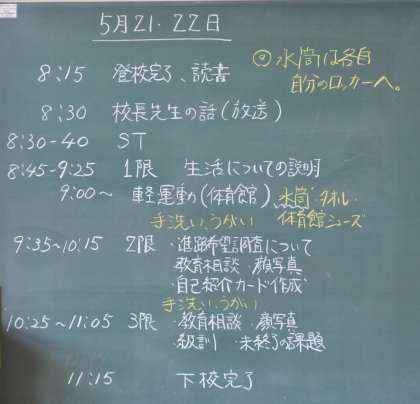 5月21・22日
◎水筒は各自
自分のロッカーへ。
8:15 登校完了、読書
8:30 校長先生の話(放送)
8:30-40 ST
8:45-9:25 1限 生活についての説明
9:00〜 軽運動(体育館) 水筒・タオル・
手洗い、うがい 体育館シューズ
9:35〜10:15 2限 ・進路希望調査について
教育相談・顔写真
・自己紹介カード作成
手洗い、うがい
10:25〜11:05 3限 ・教育相談・顔写真
・級訓 ・未終了の課題
11:15 下校完了